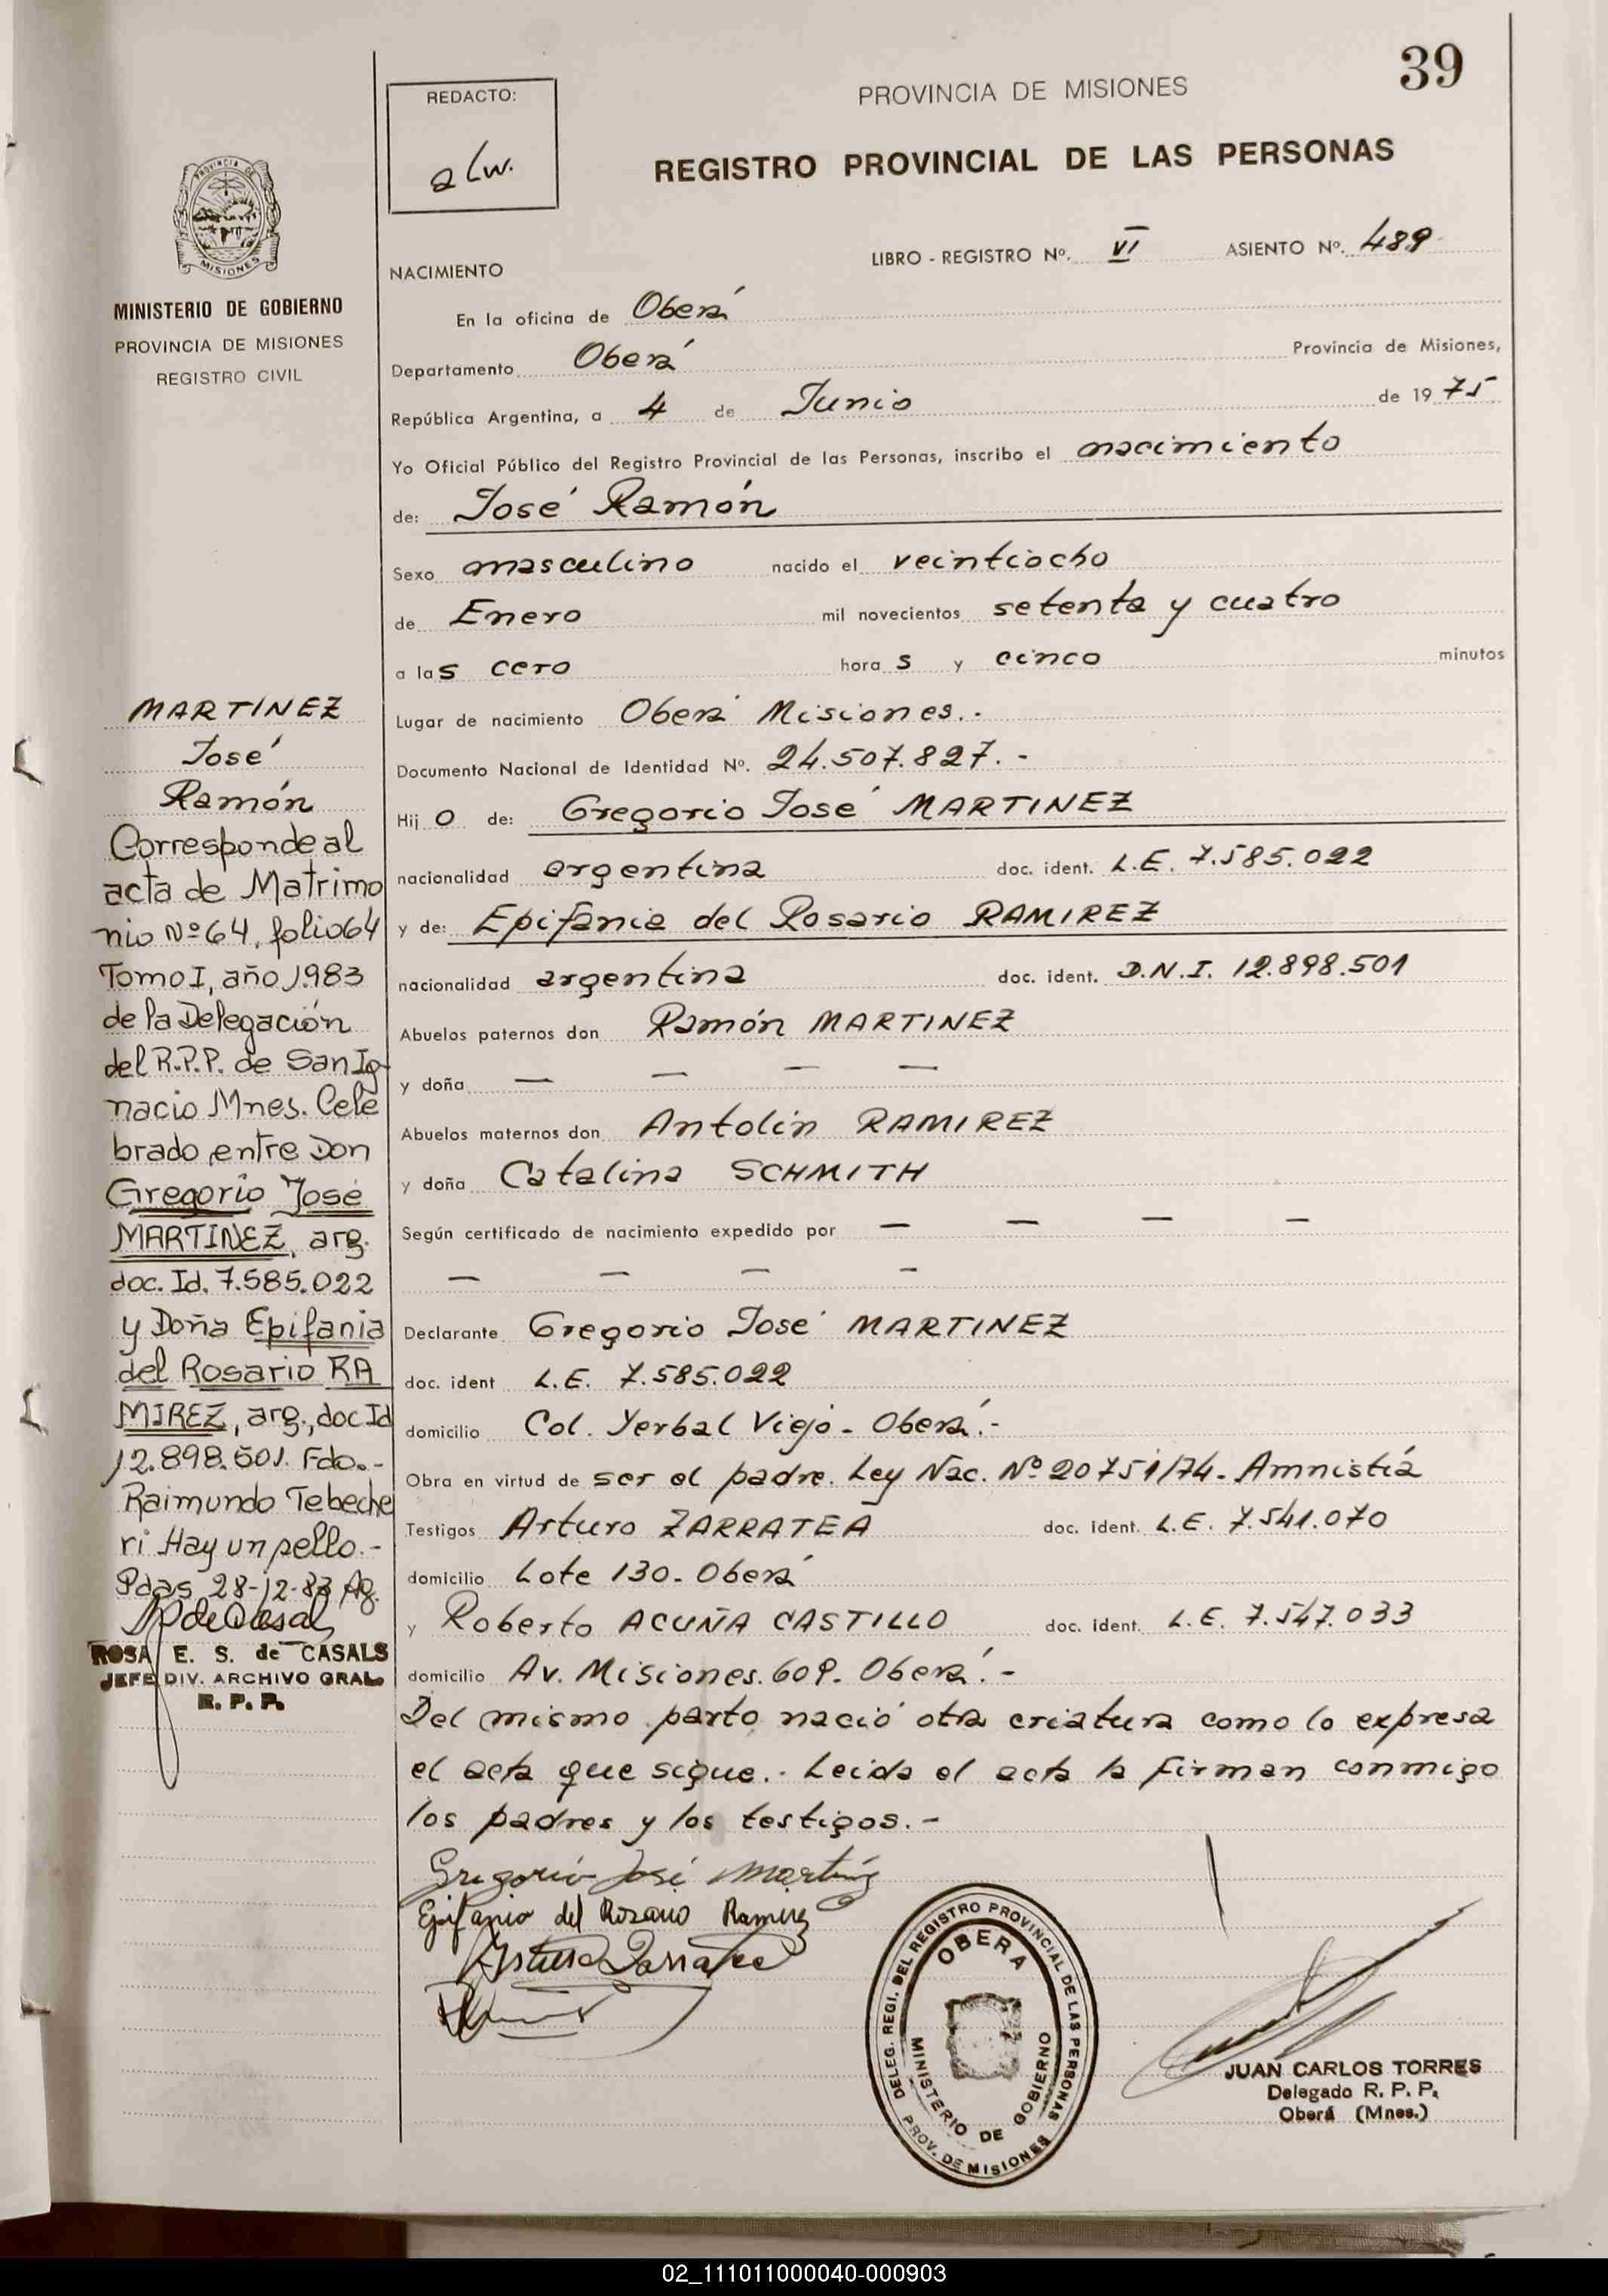 39
REDACTO:
alw.
PROVINCIA DE MISIONES
REGISTRO PROVINCIAL DE LAS PERSONAS
PROVINCIA DE
MISIONES
MINISTERIO DE GOBIERNO
PROVINCIA DE MISIONES
REGISTRO CIVIL
LIBRO - REGISTRO Nº. VI ASIENTO Nº. 489
NACIMIENTO
En la oficina de Oberá
Departamento Oberá Provincia de Misiones,
República Argentina, a 4 de Junio de 19 75
Yo Oficial Público del Registro Provincial de las Personas, inscribo el nacimiento
de: José Ramón
Sexo masculino nacido el veintiocho
de Enero mil novecientos setenta y cuatro
a las cero hora s y cinco minutos
Lugar de nacimiento Oberá Misiones.-
Documento Nacional de Identidad Nº. 24.507.827.-
Hij o de: Gregorio José MARTINEZ
nacionalidad argentina doc. ident. L.E. 7.585.022
y de: Epifania del Rosario RAMIREZ
nacionalidad argentina doc. ident. D.N.I. 12.898.501
Abuelos paternos don Ramón MARTINEZ
y doña — — — —
Abuelos maternos don Antolin RAMIREZ
y doña Catalina SCHMITH
Según certificado de nacimiento expedido por — — — —
— — — —
Declarante Gregorio José MARTINEZ
doc. ident L.E. 7.585.022
domicilio Col. Yerbal Viejo - Oberá.-
Obra en virtud de ser el padre. Ley Nac. Nº 20751/74- Amnistiá
Testigos Arturo ZARRATEA doc. ident. L.E. 7.541.070
domicilio Lote 130- Oberá
y Roberto ACUÑA CASTILLO doc. ident. L.E. 7.547.033
domicilio Av. Misiones. 609. Oberá.-
Del mismo parto nació otra criatura como lo expresa
el acta que sigue.- Leida el acta la firman conmigo
los padres y los testigos.-
Gregorio José Martinez
Epifania del Rosario Ramirez
Arturo Zarratea
MARTINEZ
José
Ramón
Corresponde al
acta de Matrimo
nio Nº 64, folio 64
Tomo I, año 1983
de la Delegación
del R.P.P. de San Ig-
nacio Mnes. Cele
brado entre Don
Gregorio José
MARTINEZ, arg.
doc. Id. 7.585.022
y Doña Epifania
del Rosario RA
MIREZ, arg., doc Id
12.898.501. Fdo.-
Raimundo Tebeche
ri Hay un sello.-
Pdas 28-12-83 Ag.
ROSA E. S. de CASALS
JEFE DIV. ARCHIVO GRAL.
R. P. P.
DELEG. REGI. DEL REGISTRO PROVINCIAL DE LAS PERSONAS
OBERA
MINISTERIO DE GOBIERNO
PROV. DE MISIONES
JUAN CARLOS TORRES
Delegado R. P. P.
Oberá (Mnes.)
02_111011000040-000903